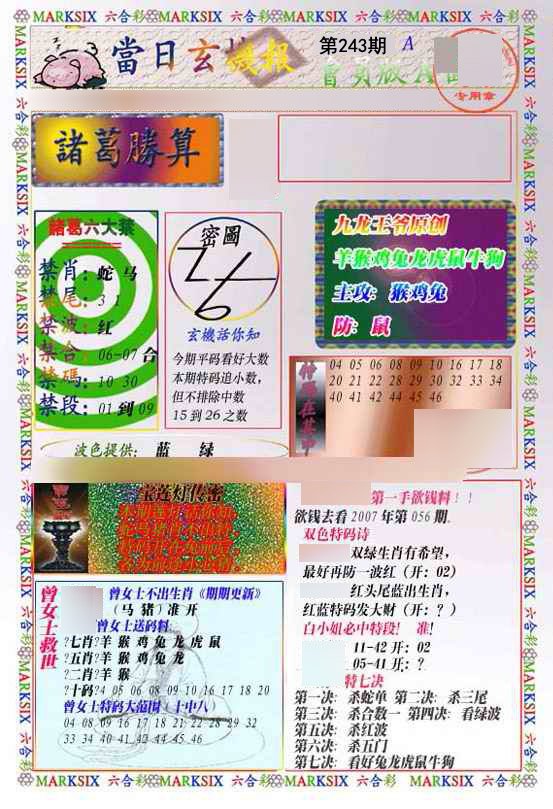 MARKSIX 六合彩 MARKSIX 六合彩 MARKSIX 六合彩 MARKSIX 六合彩 MARKSIX
當日玄機報
第243期 A
會員版A面
专用章
諸葛勝算
諸葛六大禁
禁肖：蛇 马
禁尾：3 1
禁波：红
禁合：06-07 合
禁碼：10 30
禁段：01 到 09
密圖
玄機話你知
今期平码看好大数
本期特码追小数，
但不排除中数
15 到 26 之数
九龙王爷原创
羊猴鸡兔龙虎鼠牛狗
主攻：猴鸡兔
防：鼠
特碼在其中
04 05 06 08 09 10 16 17 18
20 21 22 28 29 30 32 33 34
40 41 42 44 45 46
波色提供： 蓝 绿
宝莲灯传密
第一手欲钱料！！
欲钱去看 2007 年第 056 期.
双色特码诗
双绿生肖有希望，
最好再防一波红（开：02）
红头尾蓝出生肖，
红蓝特码发大财（开：？）
白小姐必中特段！ 准！
11-42 开：02
05-41 开：？
特七决
第一决：杀蛇单 第二决：杀三尾
第三决：杀合数一 第四决：看绿波
第五决：杀红波
第六决：杀五门
第七决：看好兔龙虎鼠牛狗
曾女士救世
曾女士不出生肖《期期更新》
（马 猪）准 开
曾女士送码料：
?七肖?羊 猴 鸡 兔 龙 虎 鼠
?五肖?羊 猴 鸡 兔 龙
?二肖?羊 猴
?十码?4 05 06 08 09 10 16 17 18 20
曾女士特码大范围（十中八）
04 08 09 16 17 18 21 22 28 29 32
33 34 40 41 42 44 45 46
MARKSIX 六合彩 MARKSIX 六合彩 MARKSIX 六合彩 MARKSIX 六合彩 MARKSIX